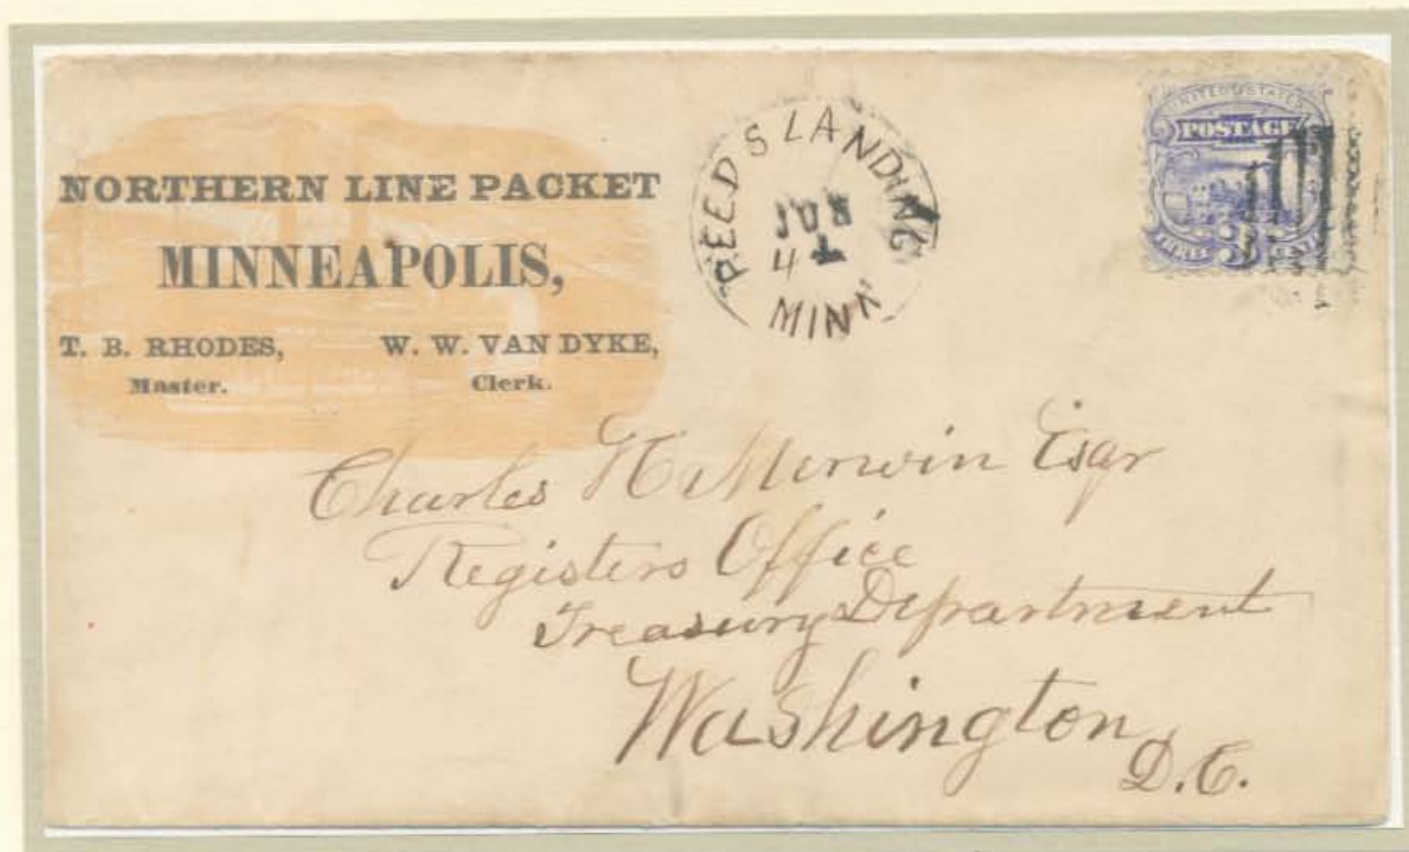 NORTHERN LINE PACKET
MINNEAPOLIS,
T. B. RHODES, W. W. VAN DYKE,
Master. Clerk.
REEDS LANDING
4
MINN
UNITED STATES
POSTAGE
THREE 3 CENTS
Charles H Merwin Esqr
Registers Office
Treasury Department
Washington
D.C.